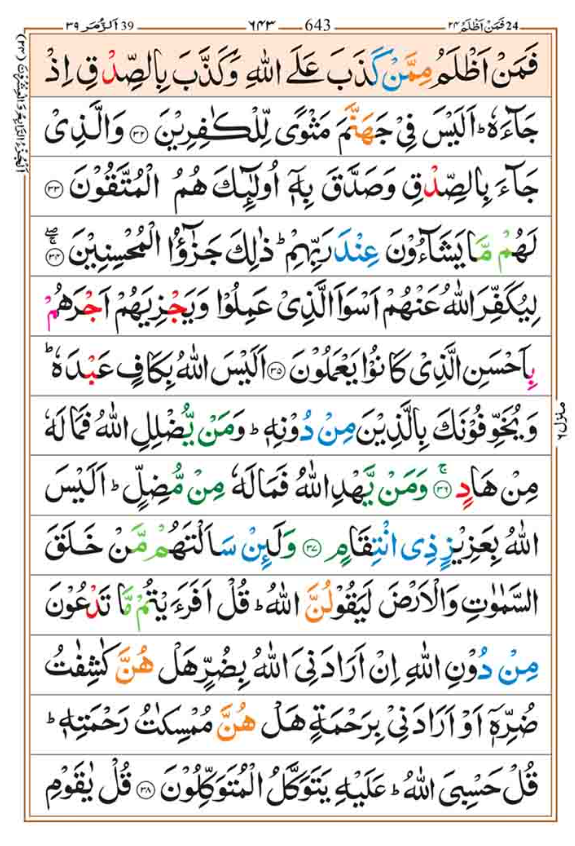 39 اَلزُّمَر ۳۹ ۶۴۳ 643 24 فَمَنْ اَظْلَمُ ۲۴
فَمَنْ اَظْلَمُ مِمَّنْ كَذَبَ عَلَى اللّٰهِ وَكَذَّبَ بِالصِّدْقِ اِذْ
جَآءَهٗ ؕ اَلَيْسَ فِيْ جَهَنَّمَ مَثْوًى لِّلْكٰفِرِيْنَ ۝۳۲ وَالَّذِيْ
جَآءَ بِالصِّدْقِ وَصَدَّقَ بِهٖۤ اُولٰٓئِكَ هُمُ الْمُتَّقُوْنَ ۝۳۳
لَهُمْ مَّا يَشَآءُوْنَ عِنْدَ رَبِّهِمْ ؕ ذٰلِكَ جَزٰٓؤُا الْمُحْسِنِيْنَ ۝۳۴
لِيُكَفِّرَ اللّٰهُ عَنْهُمْ اَسْوَاَ الَّذِيْ عَمِلُوْا وَيَجْزِيَهُمْ اَجْرَهُمْ
بِاَحْسَنِ الَّذِيْ كَانُوْا يَعْمَلُوْنَ ۝۳۵ اَلَيْسَ اللّٰهُ بِكَافٍ عَبْدَهٗ ؕ
وَيُخَوِّفُوْنَكَ بِالَّذِيْنَ مِنْ دُوْنِهٖ ؕ وَمَنْ يُّضْلِلِ اللّٰهُ فَمَا لَهٗ
مِنْ هَادٍ ۝۳۶ۚ وَمَنْ يَّهْدِ اللّٰهُ فَمَا لَهٗ مِنْ مُّضِلٍّ ؕ اَلَيْسَ
اللّٰهُ بِعَزِيْزٍ ذِي انْتِقَامٍ ۝۳۷ وَلَئِنْ سَاَلْتَهُمْ مَّنْ خَلَقَ
السَّمٰوٰتِ وَالْاَرْضَ لَيَقُوْلُنَّ اللّٰهُ ؕ قُلْ اَفَرَءَيْتُمْ مَّا تَدْعُوْنَ
مِنْ دُوْنِ اللّٰهِ اِنْ اَرَادَنِيَ اللّٰهُ بِضُرٍّ هَلْ هُنَّ كٰشِفٰتُ
ضُرِّهٖۤ اَوْ اَرَادَنِيْ بِرَحْمَةٍ هَلْ هُنَّ مُمْسِكٰتُ رَحْمَتِهٖ ؕ
قُلْ حَسْبِيَ اللّٰهُ ؕ عَلَيْهِ يَتَوَكَّلُ الْمُتَوَكِّلُوْنَ ۝۳۸ قُلْ يٰقَوْمِ
منزل ۶